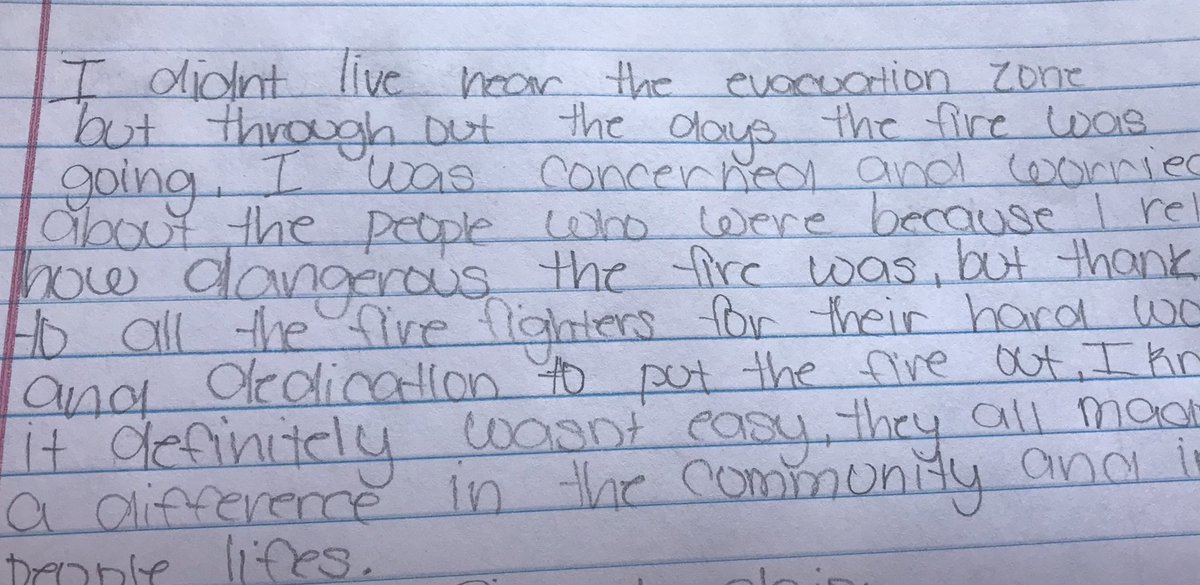 I didnt live near the evacuation zone
but through out the days the fire was
going, I was concerned and worried
about the people who were because I
how dangerous the fire was, but thank
to all the fire fighters for their hard
and dedication to put the fire out, I
it definitely wasnt easy, they all
a difference in the community and
people lifes.